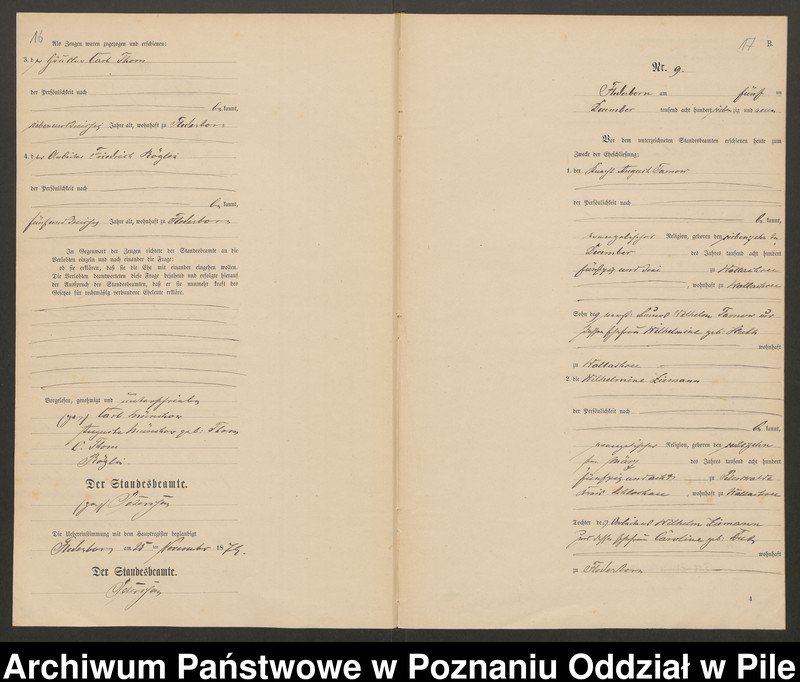 16
Als Zeugen waren zugezogen und erschienen:
3. der Carl Thom
der Persönlichkeit nach
be kannt,
siebenunddreißig Jahre alt, wohnhaft zu Flederborn
4. der Arbeiter Friedrich
der Persönlichkeit nach
be kannt,
fünfunddreißig Jahre alt, wohnhaft zu Flederborn
In Gegenwart der Zeugen richtete der Standesbeamte an die
Verlobten einzeln und nach einander die Frage:
ob sie erklären, daß sie die Ehe mit einander eingehen wollen.
Die Verlobten beantworteten diese Frage bejahend und erfolgte hierauf
der Ausspruch des Standesbeamten, daß er sie nunmehr kraft des
Gesetzes für rechtmäßig verbundene Eheleute erkläre.
Vorgelesen, genehmigt und unterschrieben
(gez) Carl
Auguste geb. Thom
C. Thom
Der Standesbeamte.
(gez)
Die Uebereinstimmung mit dem Hauptregister beglaubigt
Flederborn am 25 ten November 1879.
Der Standesbeamte.
17 B.
Nr. 9.
Flederborn am fünf ten
Dezember tausend acht hundert sieben zig und neun
Vor dem unterzeichneten Standesbeamten erschienen heute zum
Zwecke der Eheschließung:
1. der Knecht August
der Persönlichkeit nach
be kannt,
evangelischer Religion, geboren den siebenzehn ten
Dezember des Jahres tausend acht hundert
fünfzig und drei zu Wallachsee
, wohnhaft zu Wallachsee
Sohn des Wilhelm
dessen Ehefrau Wilhelmine geb.
wohnhaft
zu Wallachsee
2. die Wilhelmine
der Persönlichkeit nach
be kannt,
evangelischer Religion, geboren den
ten März des Jahres tausend acht hundert
fünfzig und acht zu
Kreis Schlochau, wohnhaft zu Wallachsee
Tochter des Arbeiters Wilhelm
und dessen Ehefrau Caroline geb.
wohnhaft
zu Flederborn
4
Archiwum Państwowe w Poznaniu Oddział w Pile